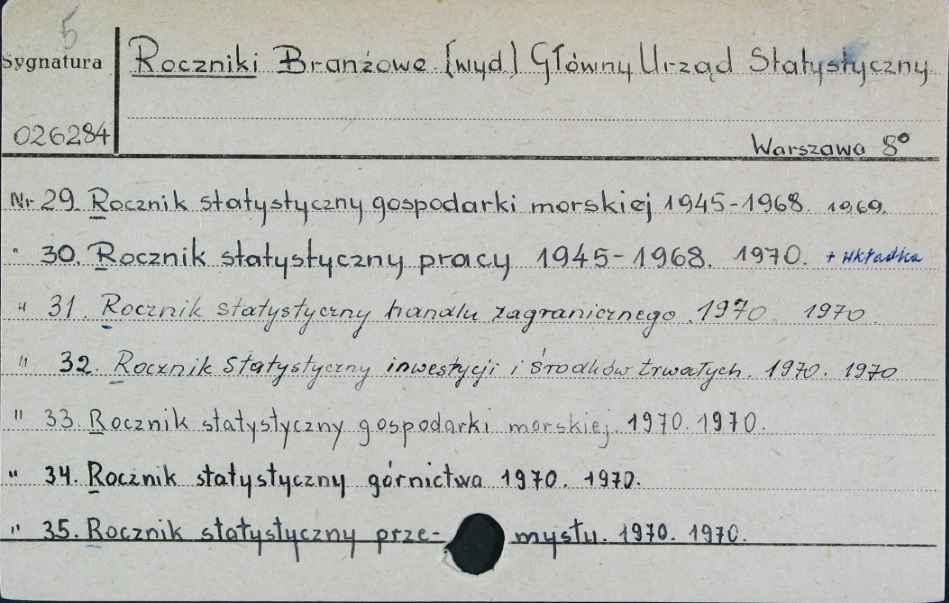 5
Sygnatura
Roczniki Branżowe [wyd] Główny Urząd Statystyczny
026284
Warszawa 8°
Nr 29. Rocznik statystyczny gospodarki morskiej 1945-1968. 1969.
" 30. Rocznik statystyczny pracy 1945-1968. 1970. + wkładka
" 31. Rocznik statystyczny handlu zagranicznego. 1970 1970.
" 32. Rocznik statystyczny inwestycji i środków trwałych. 1970. 1970
" 33. Rocznik statystyczny gospodarki morskiej. 1970. 1970.
" 34. Rocznik statystyczny górnictwa 1970. 1970.
" 35. Rocznik statystyczny prze- mysłu. 1970. 1970.